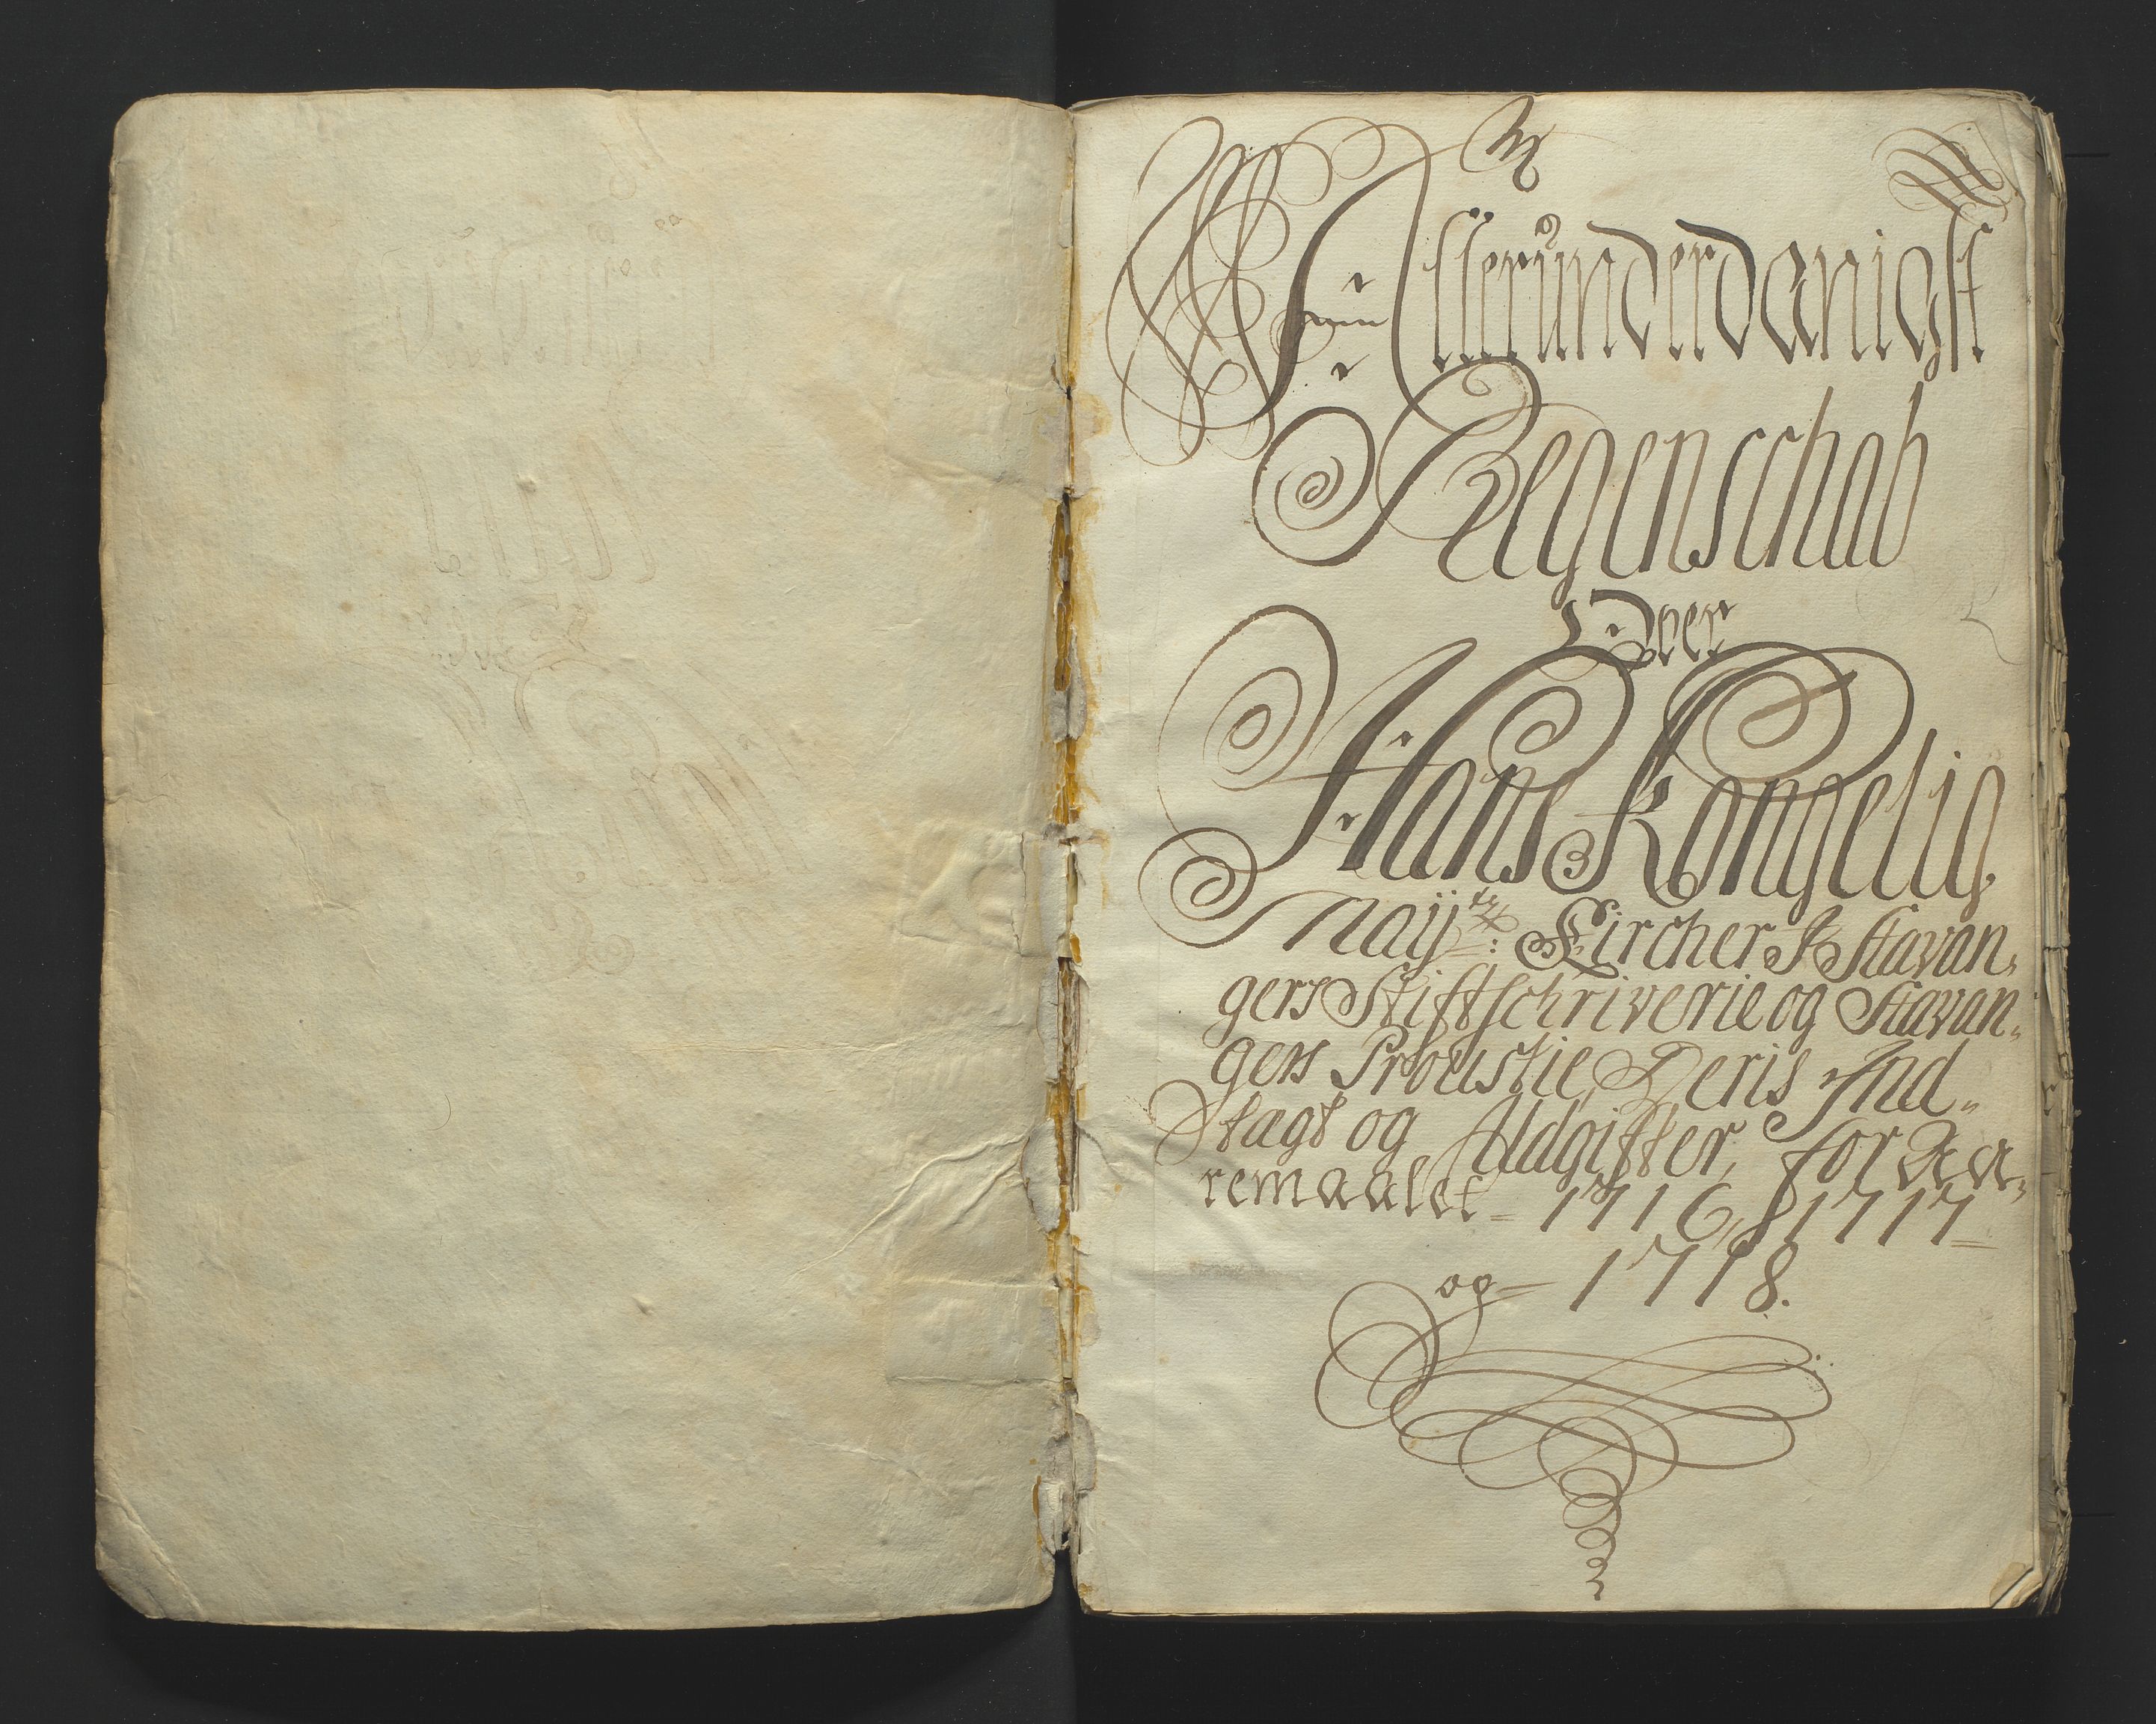 Allerunderdanigst
Regenschab
Over
Hans Kongelig
Maijts: Kircher J Stavan-
gers Stiftschriverie og Stavan-
gers Proustie, Deris Ind-
tægt og Udgifter, for Aa-
remaalet- 1716, 1717-
og- 1718.